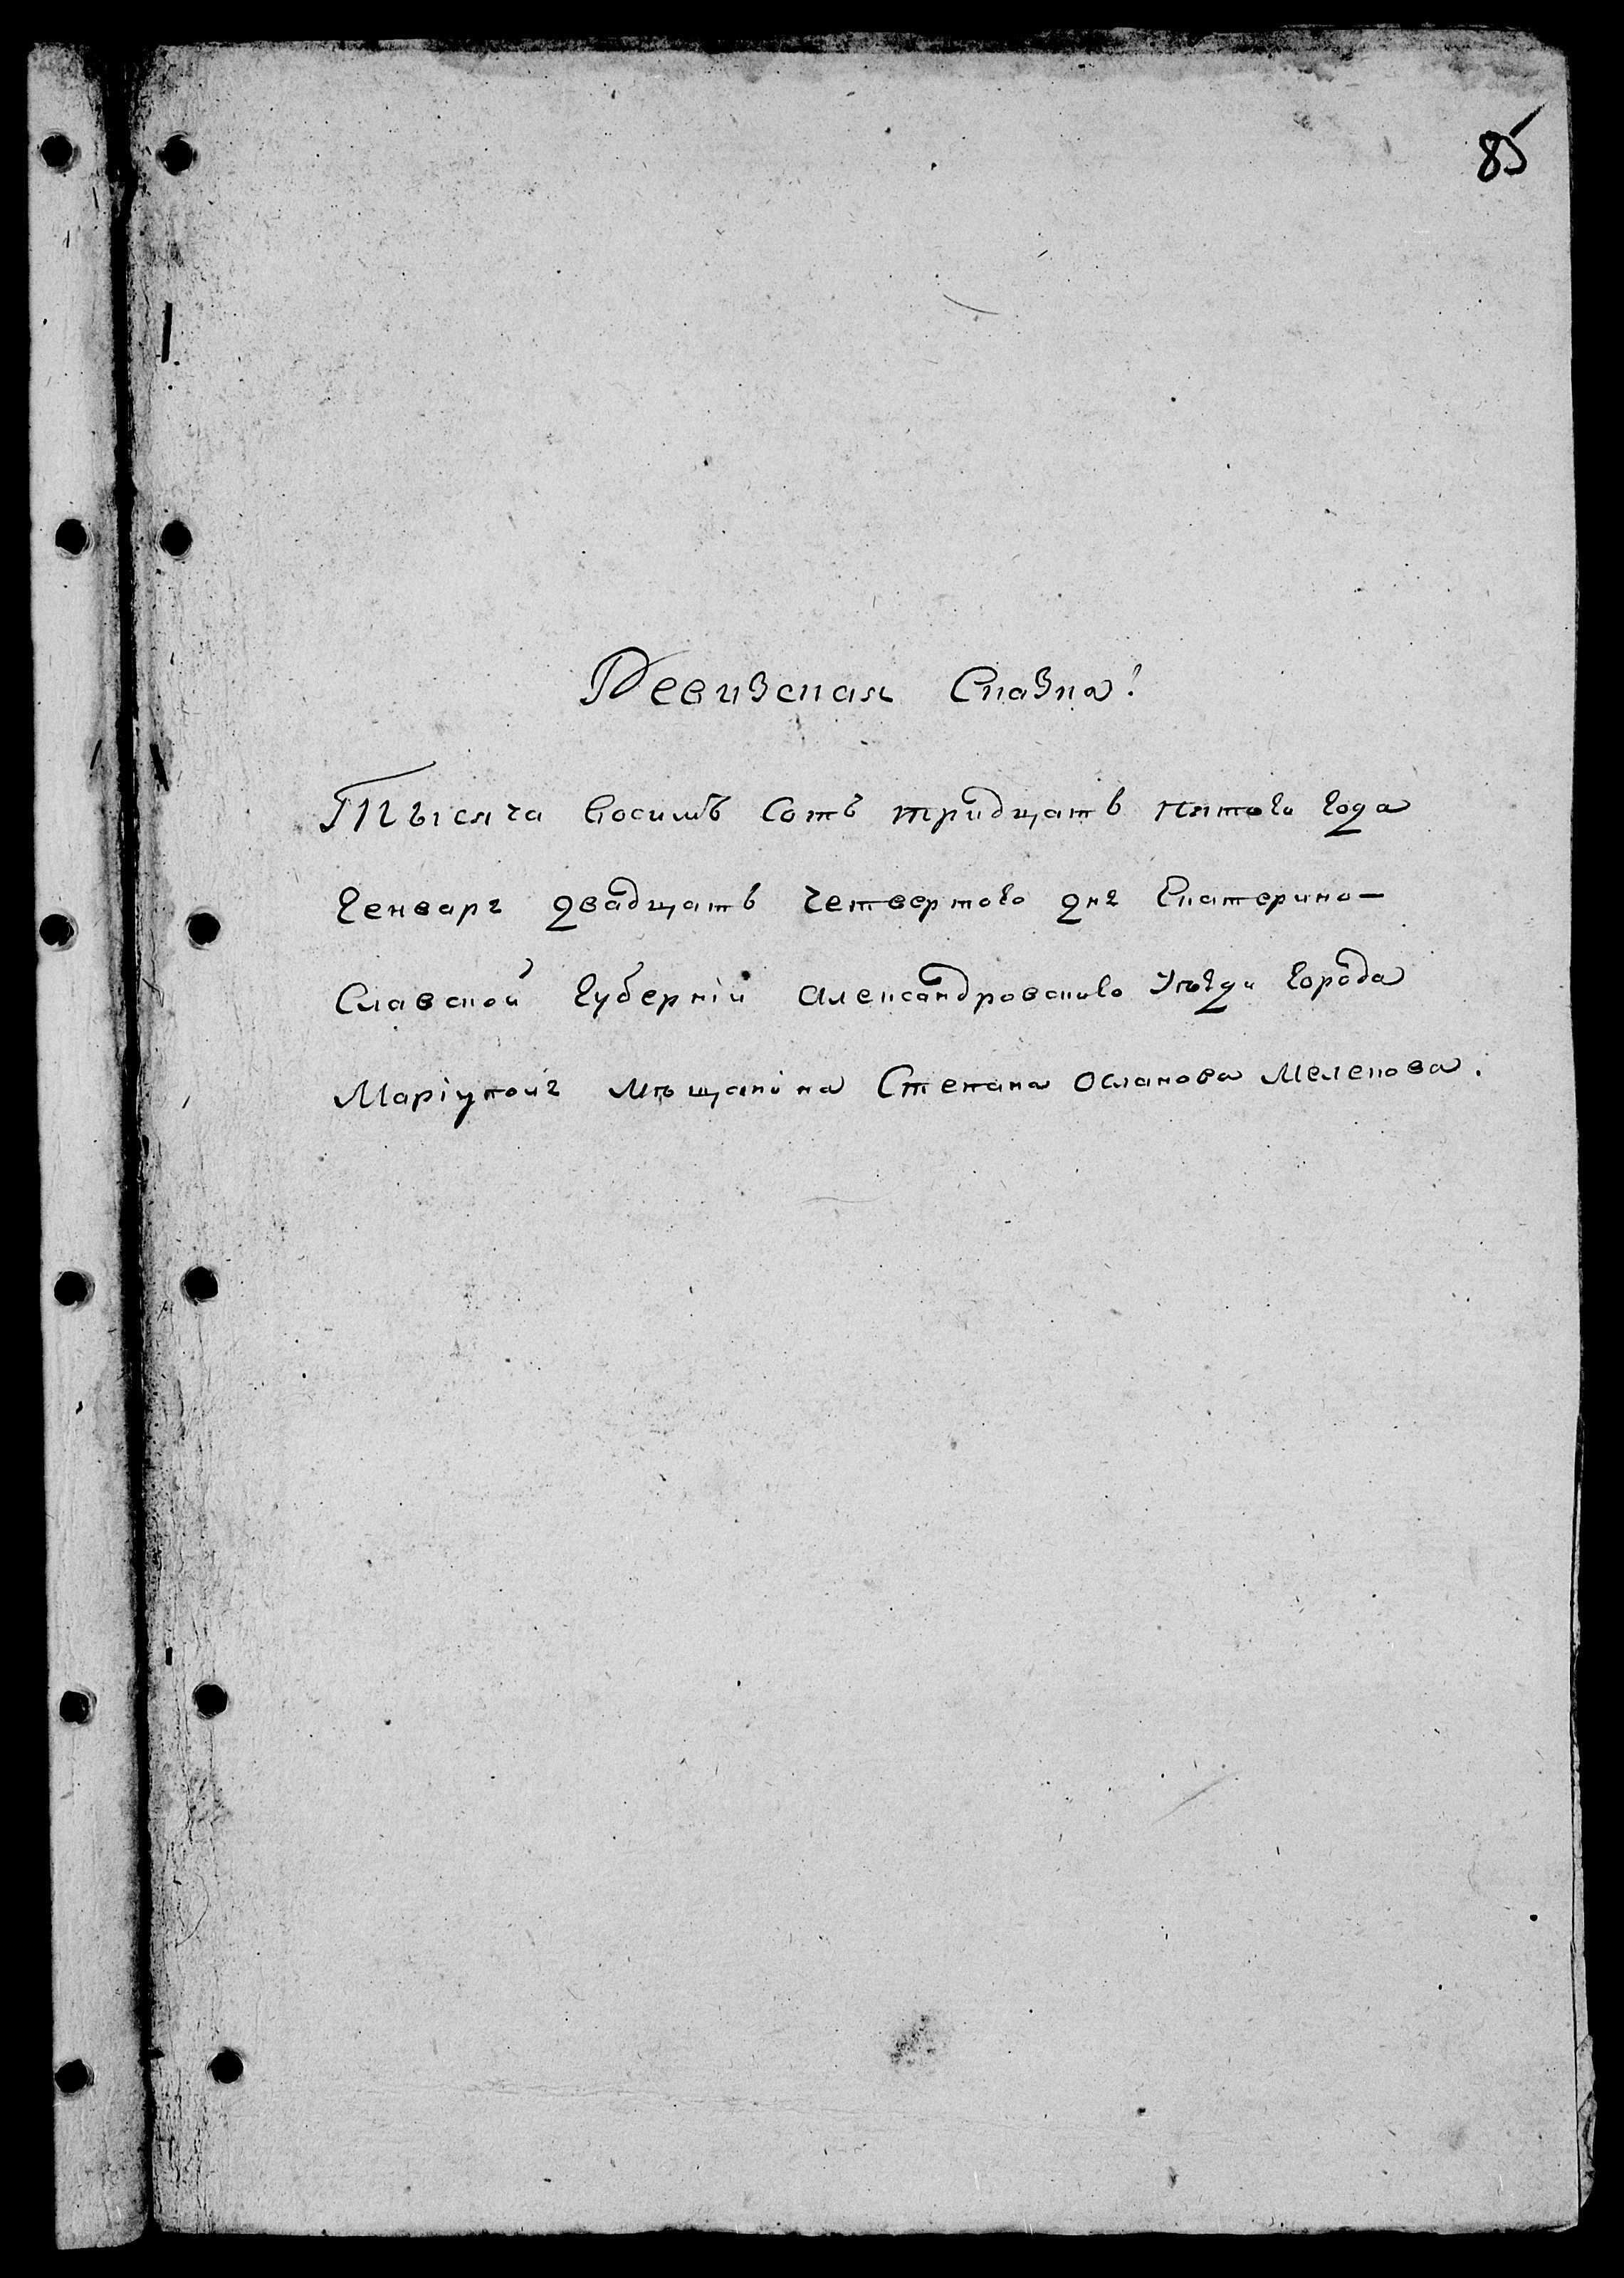 85
Ревизская Сказка!
Тысяча восимъ сотъ тридцать пятого года
Генваря двадцать четвертого дня Екатерино-
Славской Губерніи Александровскаго Уѣзда Города
Маріуполя Мѣщанина Степана Осланова Мелекова.